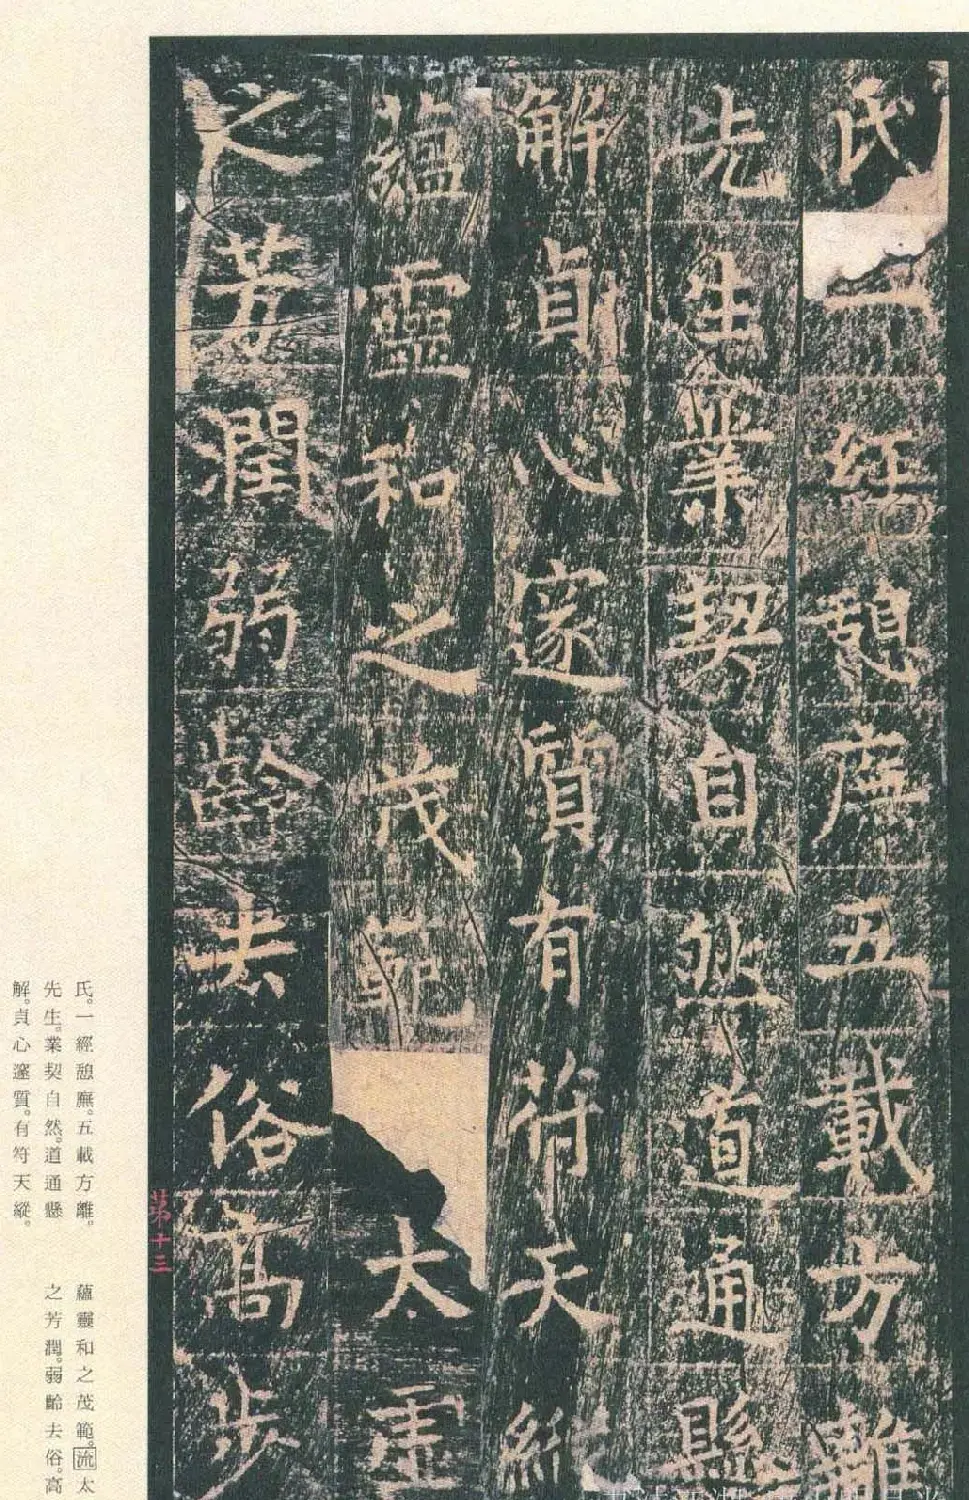 氏一經憩廡五載方離
先生業契自然道通縣
解貞心邃質有符天縱
蘊靈和之茂範太虛
之芳潤弱齡去俗高步
第十三
氏。一經憩廡。五載方離。
先生。業契自然。道通懸
解。貞心邃質。有符天縱。
蘊靈和之茂範。流太
之芳潤。弱齡去俗。高